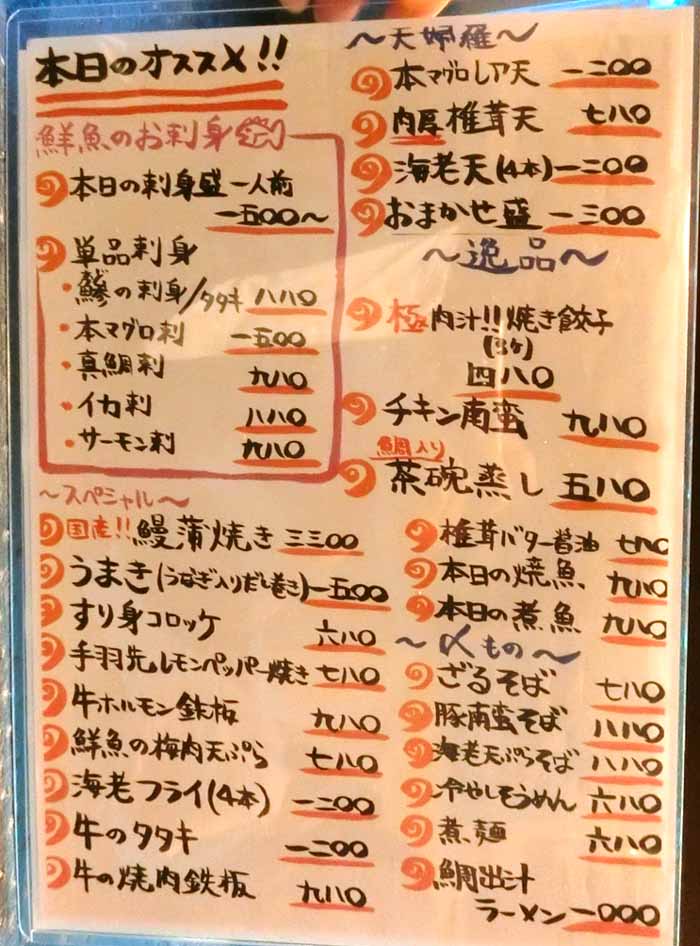 本日のオススメ!!
鮮魚のお刺身
本日の刺身盛一人前
一五〇〇〜
単品刺身
・鯵の刺身/タタキ 八八〇
・本マグロ刺 一五〇〇
・真鯛刺 九八〇
・イカ刺 八八〇
・サーモン刺 九八〇
〜スペシャル〜
国産!!鰻蒲焼き 三三〇〇
うまき(うなぎ入りだし巻き) 一五〇〇
すり身コロッケ 六八〇
手羽先レモンペッパー焼き 七八〇
牛ホルモン鉄板 九八〇
鮮魚の梅肉天ぷら 七八〇
海老フライ(4本) 一二〇〇
牛のタタキ 一二〇〇
牛の焼肉鉄板 九八〇
〜天婦羅〜
本マグロレア天 一二〇〇
肉厚椎茸天 七八〇
海老天(4本) 一二〇〇
おまかせ盛 一三〇〇
〜逸品〜
極肉汁!!焼き餃子
(5ヶ)
四八〇
チキン南蛮 九八〇
鯛入り
茶碗蒸し 五八〇
椎茸バター醤油 七八〇
本日の焼魚 九八〇
本日の煮魚 九八〇
〜〆もの〜
ざるそば 七八〇
豚南蛮そば 八八〇
海老天ぷらそば 八八〇
冷やしそうめん 六八〇
煮麺 六八〇
鯛出汁
ラーメン 一〇〇〇